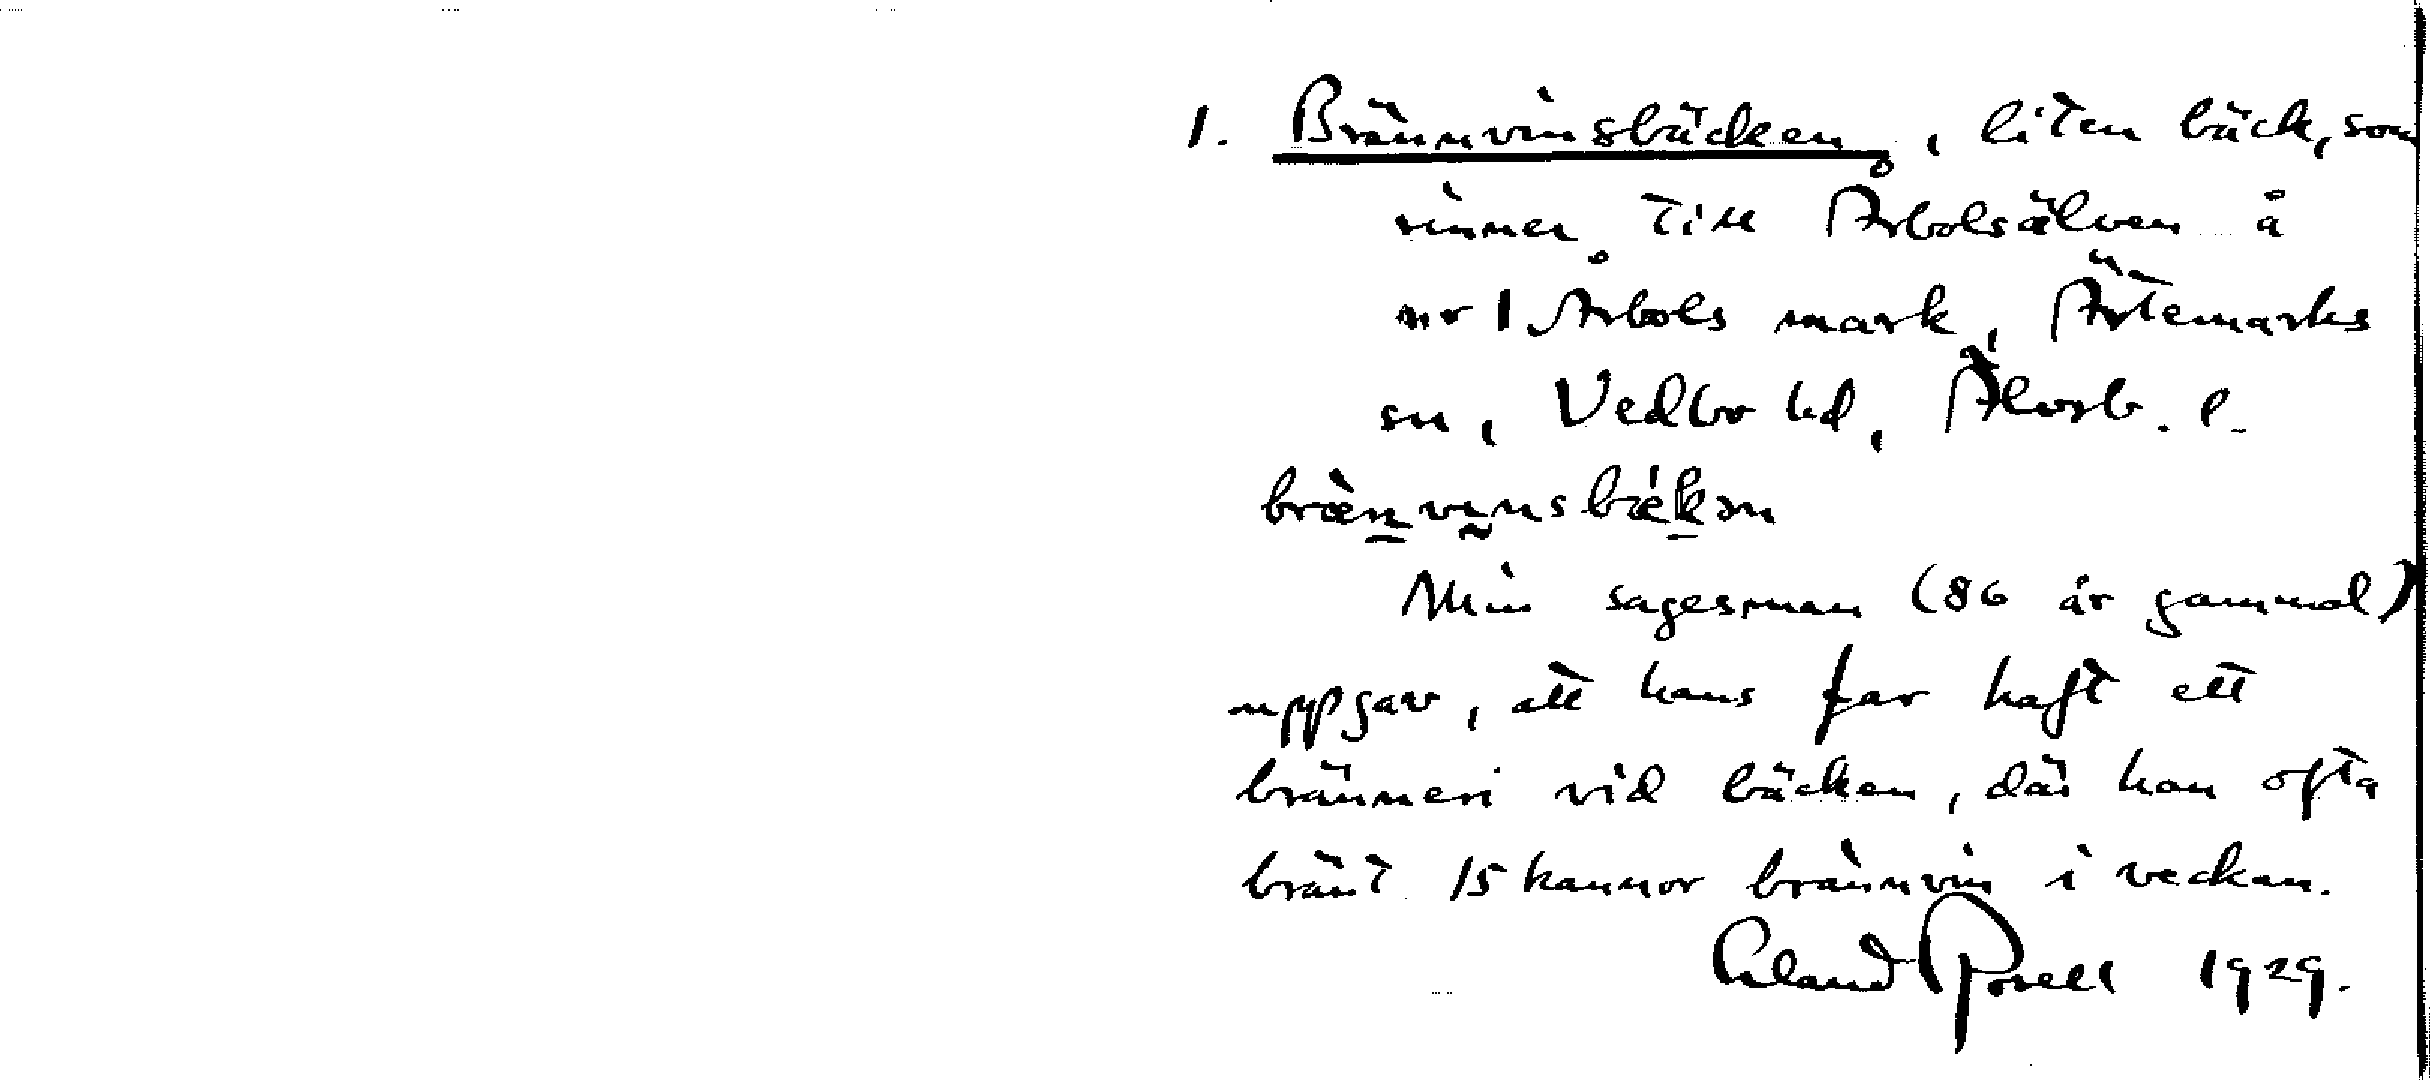 1. Brännvinsbäcken, liten bäck, som
rinner till Årbolsälven å
nr 1 Årbols mark, Ärtemarks
sn, Vedbo hd, Älvsb. l.
bræ̀n̲vı̰nsbǽk̲ən
Min sagesman (86 år gammal)
uppgav, att hans far haft ett
bränneri vid bäcken, där han ofta
bränt 15 kannor brännvin i veckan.
Erland Rosell 1929.